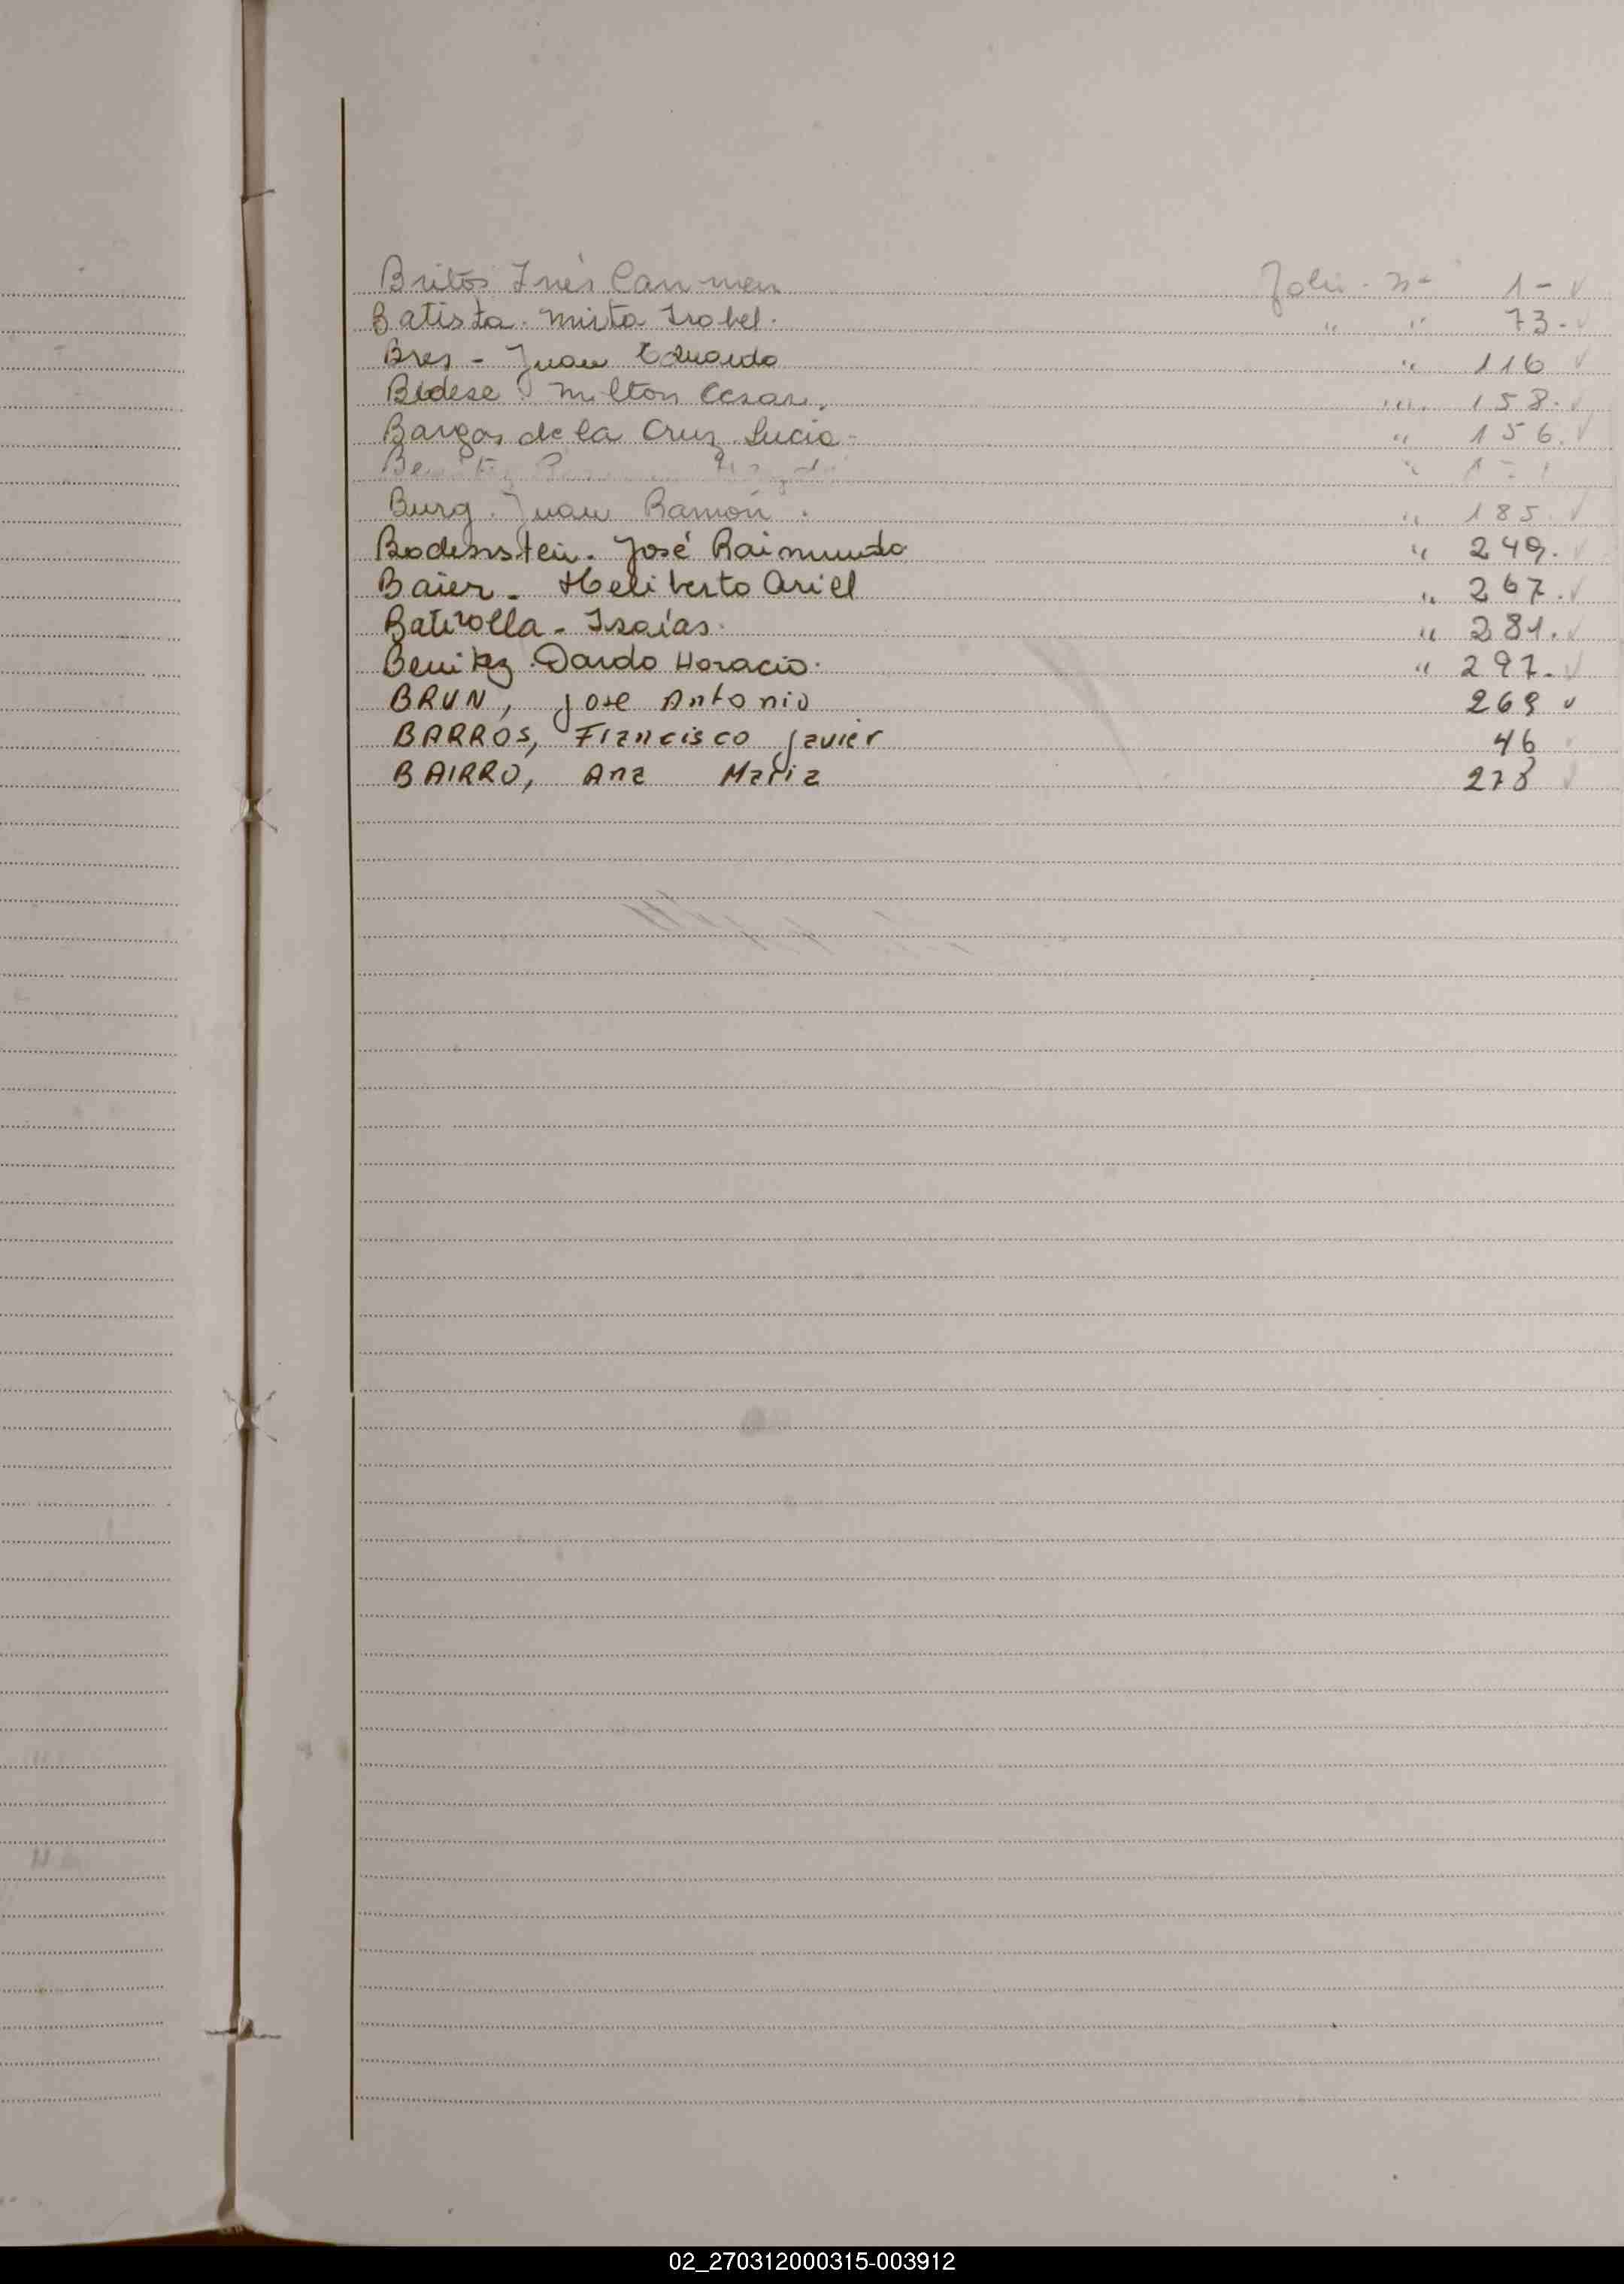 Britos Inés Carmen Folio - n- 1- ✓
Batista - Mirta Isabel. " " 73- ✓
Bres - Juan Eduardo " 116 ✓
Bidese Milton Cesar. " 158. ✓
Bargas de la Cruz Lucio - " 156. ✓
"
Burg. Juan Ramón. " 185 ✓
Bodenstein. José Raimundo " 249. ✓
Baier - Heliberto Ariel " 267. ✓
Batirolla - Isaías. " 281. ✓
Benitez Dardo Horacio. " 297. ✓
BRUN, Jose Antonio 269 ✓
BARROS, Francisco Javier 46
BAIRRO, Ana Maria 278 ✓
02_270312000315-003912